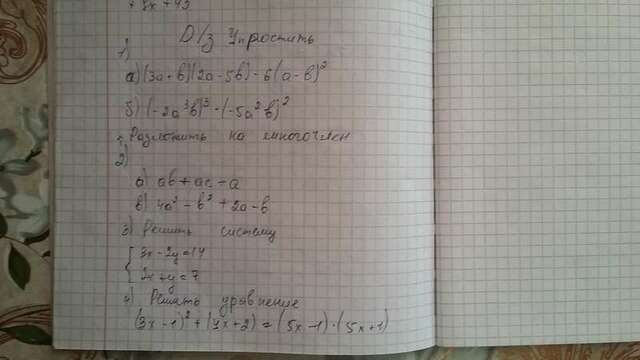 Д/З Упростить
1)
а) (3a+b)(2a-5b)-6(a-b)²
б) (-2a³b)³·(-5a²b)²
2) Разложить на многочлен
а) ab+ac-a
в) 4a²-b²+2a-b
3) Решить систему
{ 3x-2y=14
2x+y=7
4) Решить уравнение
(3x-1)²+(4x+2)=(5x-1)·(5x+1)